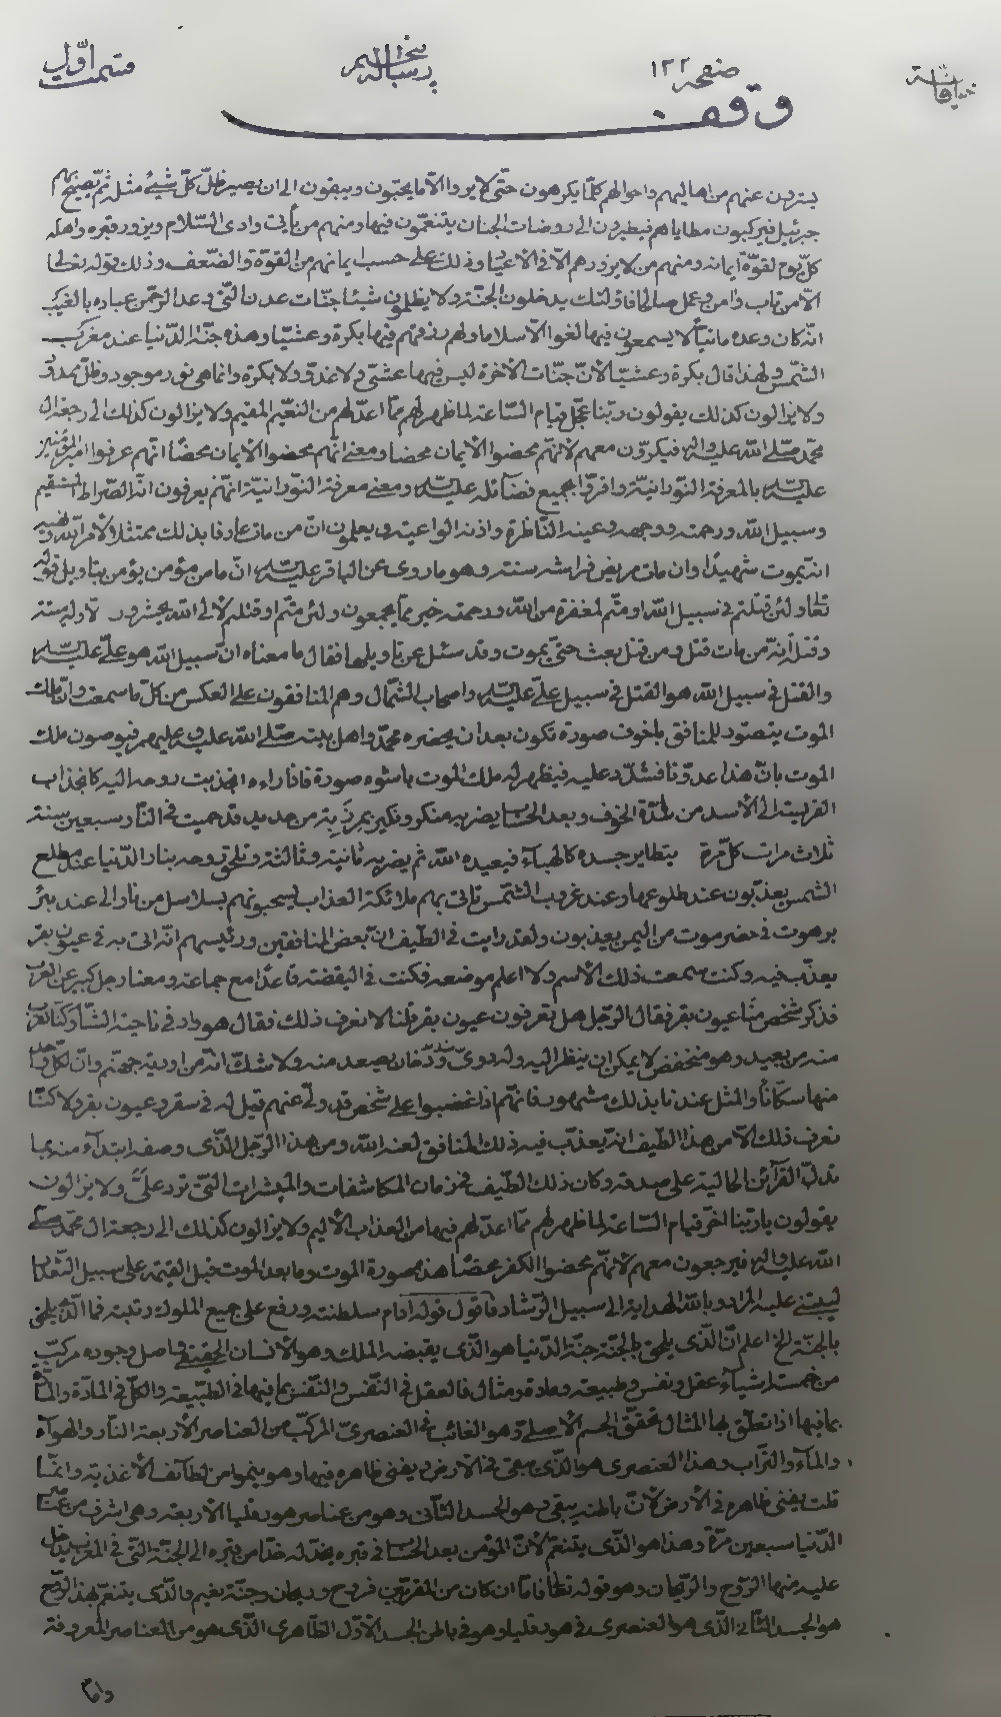 قسمت اوّل
رسالة
صفحه ۱۲۲
وقف
يسترون عنهم من اهاليهم واحوالهم كلّما يكرهون حتّى لا يروا الّا ما يحبّون ويبقون الى ان يصير ظلّ كلّ شيئ مثله ثمّ يصيح بهم
جبرئيل فيركبون مطاياهم فيطيرون الى روضات الجنان يتنعّمون فيها ومنهم من يأتى وادى السّلام ويزور قبره واهله
كلّ يوم لقوّة ايمانه ومنهم من لا يزورهم الّا فى الاعياد وذلك على حسب ايمانهم من القوّة والضّعف وذلك قوله تعالى
الّا من تاب وامن وعمل صالحا فاولئك يدخلون الجنّة ولا يظلمون شيئا جنّات عدن الّتى وعد الرّحمن عباده بالغيب
انّه كان وعده مأتيّاً لا يسمعون فيها لغوا الّا سلاما ولهم رزقهم فيها بكرة وعشيّا وهذه جنّة الدّنيا عند مغرب
الشّمس ولهذا قال بكرة وعشيّا لانّ جنّات الاخرة ليس فيها عشىّ ولا غدوّ ولا بكرة وانما هى نور موجود وظلّ ممدود
ولا يزالون كذلك يقولون ربّنا عجّل قيام السّاعة لما ظهر لهم ممّا اعدّ لهم من النّعيم المقيم ولا يزالون كذلك الى رجعة ال
محمّد صلّى اللّه عليه واله فيكرّون معهم لانّهم محضوا الأيمان محضا ومعنى انّهم محضوا الأيمان محضًا انّهم عرفوا امير المؤمنين
عليه السّلام بالمعرفة النّورانيّة واقرّوا بجميع فضآئله عليه السّلام ومعنى معرفة النّورانيّة انّهم يعرفون انّه الصّراط المستقيم
وسبيل اللّه ورحمته ووجهه وعينه النّاظرة واذنه الواعية ويعلمون انّ من مات عارفا بذلك ممتثلا لأمر اللّه ونهيه
انّه يموت شهيدًا وان مات مريض فراشه سنة وهو ما روى عن الباقر عليه السّلام انّ ما من مؤمن يؤمن بتاويل قوله
تعالى ولئن قتلتم فى سبيل اللّه او متّم لمغفرة من اللّه ورحمته خير ممّا يجمعون ولئن متّم او قتلتم لألى اللّه تحشرون الّا وله ميتة
وقتل انّه من مات قتل ومن قتل بعث حتّى يموت وقد سئل عن تاويلها فقال ما معناه انّ سبيل اللّه هو علىّ عليه السّلام
والقتل فى سبيل اللّه هو القتل فى سبيل علىّ عليه السّلام واصحاب الشّمال وهم المنافقون على العكس من كلّ ما سمعت وانّ ملك
الموت يتصوّر للمنافق بأخوف صورة تكون بعد ان يحضره محمّد واهل بيته صلّى اللّه عليه وعليهم فيوصون ملك
الموت بانّ هذا عدوّنا فشدّد عليه فيظهر له ملك الموت باشوه صورة فاذا راءه انجذبت روحه اليه كانجذاب
الفريسة الى الأسد من شدّة الخوف وبعد الحساب يضربه منكر ونكير بمرزبة من حديد قد حميت فى النّار سبعين سنة
ثلاث مرات كلّ مرّة يتطاير جسده كالهباء فيعيده اللّه ثم يضربه ثانية وثالثة وتلقى روحه بنار الدّنيا عند مطلع
الشمس يعذّبون عند طلوعها وعند غروب الشّمس تأتى بهم ملائكة العذاب يسحبونهم بسلاسل من نار الى عند بئر
برهوت فى حضرموت من اليمن يعذبون ولقد رايت فى الطّيف انّ بعض المنافقين ورئيسهم انّه اتى به فى عيون بقر
يعذّب فيه وكنت سمعت ذلك الأسم ولا اعلم موضعه فكنت فى اليقضة قاعدًا مع جماعة ومعنا رجل كبير عن العرب
فذكر شخص منّا عيون بقر فقال الرّجل هل تعرفون عيون بقر قلنا لا نعرف ذلك فقال هو واد فى ناحية الشّام وكنّا نقرب
منه من بعيد وهو منخفض لا يمكن ان ينظر اليه وله دوىّ شديد ودخان يصعد منه ولا شكّ انّه من اودية جهنّم وانّ لكلّ واحد
منها سكّانًا والمثل عندنا بذلك مشهور فانّهم اذا غضبوا على شخص قد ولّى عنهم قيل له فى سقر وعيون بقر ولا كنّا
نعرف ذلك الّا من هذا الطّيف انّه يعذّب فيه ذلك المنافق لعنه اللّه ومن هذا الرّجل الّذى وصفه ابتدآء منه بما
تدلّ القرآئن الحالية على صدقه وكان ذلك الطّيف فى زمان المكاشفات والمبشّرات الّتى ترد علىَّ ولا يزالون
يقولون يا ربّنا اخّر قيام السّاعة لما ظهر لهم ممّا اعدّ لهم فيها من العذاب الأليم ولا يزالون كذلك الى رجعة ال محمّد صلّى
اللّه عليه واله فيرجعون معهم لانّهم محضوا الكفر محضًا هذه صورة الموت وما بعد الموت قبل القيمة على سبيل التّعداد
ليبتنى عليه المراد وباللّه الهداية الى سبيل الرّشاد فاقول قوله ادام سلطنته ورفع على جميع الملوك رتبته فما الّذى يلحق
بالجنّة الخ اعلم انّ الّذى يلحق بالجنّة جنّة الدّنيا هو الّذى يقبضه الملك وهو الأنسان الحقيقى واصل وجوده مركّب
من خمسة اشيآء عقل ونفس وطبيعة ومادة ومثال فالعقل فى النّفس والنّفس بما فيها فى الطّبيعة والكلّ فى المادّة والمادّة
بما فيها اذا تعلّق بها المثال تحقّق الجسم الأصلى وهو الغائب فى العنصرىّ المركّب من العناصر الأربعة النّار والهوآء
والمآء والتّراب وهذا العنصرى هو الّذى يبقى فى الأرض ويفنى ظاهره فيها وهو ينمو من لطآئف الأغذية وانّما
قلت يفنى ظاهره فى الأرض لأنّ باطنه يبقى وهو الجسد الثّانى وهو من عناصر هورقليا الأربعة وهى اشرف من عناصر
الدّنيا سبعين مرّة وهذا هو الّذى يتنعّم لأنّ المؤمن بعد الحساب فى قبره يخدّ له خدّا من قبره الى الجنّة الّتى فى المغرب يدخل
عليه منها الرّوح والرّيحان وهو قوله تعالى فامّا ان كان من المقرّبين فروح وريحان وجنّة نعيم والّذى يتنعّم بهذا الرّوح
هو الجسد الثّانى الّذى هو العنصرى فى هورقليا وهو فى باطن الجسد الأوّل الظّاهرى الّذى هو من العناصر المعروفة
وامّا